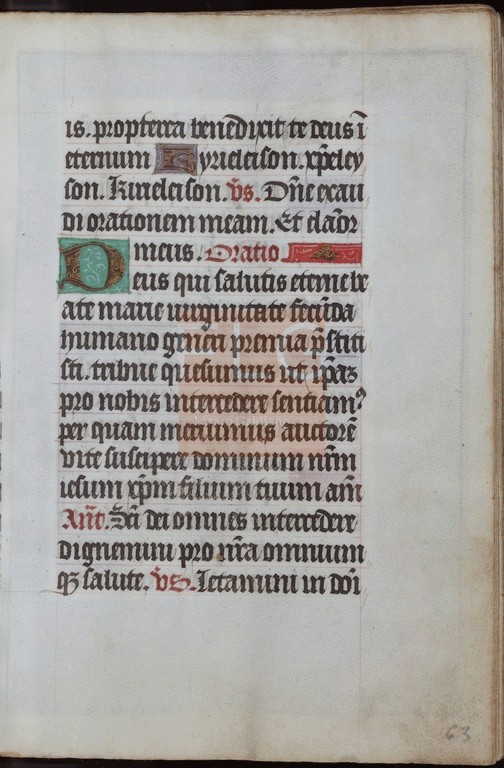 is. propterea benedixit te deus ī
eternum Kyrieleison. xp̄eley
son. Kirieleison. v̄s. Dn̄e exau
di orationem meam. Et clāor
meus. Oratio
Deus qui salutis eterne be
ate marie uirginitate fecūda
humano generi premia p̄stiti
sti. tribue quesumus ut ip̄az
pro nobis intercedere sentiam⁹
per quam meruimus auctorē
vite suscipere dominum nr̄m
iesum xp̄m filium tuum am̄
An̄t. Sc̄i dei omnes intercedere
dignemini pro nr̄a omnium
qꝫ salute. v̄s. Letamini in dōi
63